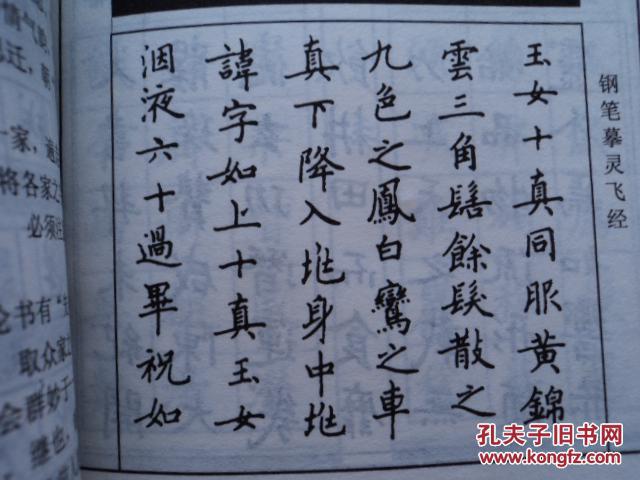 钢笔摹灵飞经
玉女十真同服黄錦
雲三角髻餘髮散之
九色之鳳白鸞之車
真下降入垗身中垗
諱字如上十真玉女
洇液六十過畢祝如
情气
已迁,
一家,
将各家之
必须
书有“
取众家
会群妙于
继也,
孔夫子旧书网
www.kongfz.com